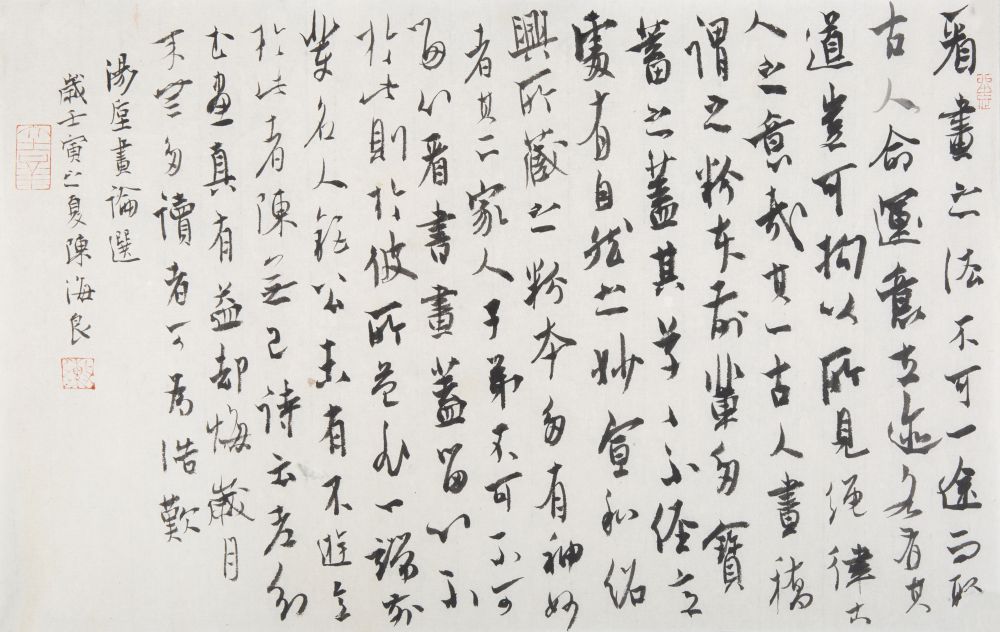 看畫之法不可一途而取
古人命運意立迹各有其
道豈可拘以所見繩律古
人之意哉其一古人畫稿
謂之粉本前輩多寶
蓄之蓋其草草不經意
處有自然之妙宣和紹
興所藏之粉本多有神妙
者其二家人子弟不可不可
留心看書畫蓋留心不
於此則於彼所益非一端前
輩名人鉅公未有不遊意
於此者陳無己詩云老知
書畫真有益却悔歲月
來無多讀者可為浩歎
湯垕畫論選
歲壬寅之夏陳海良